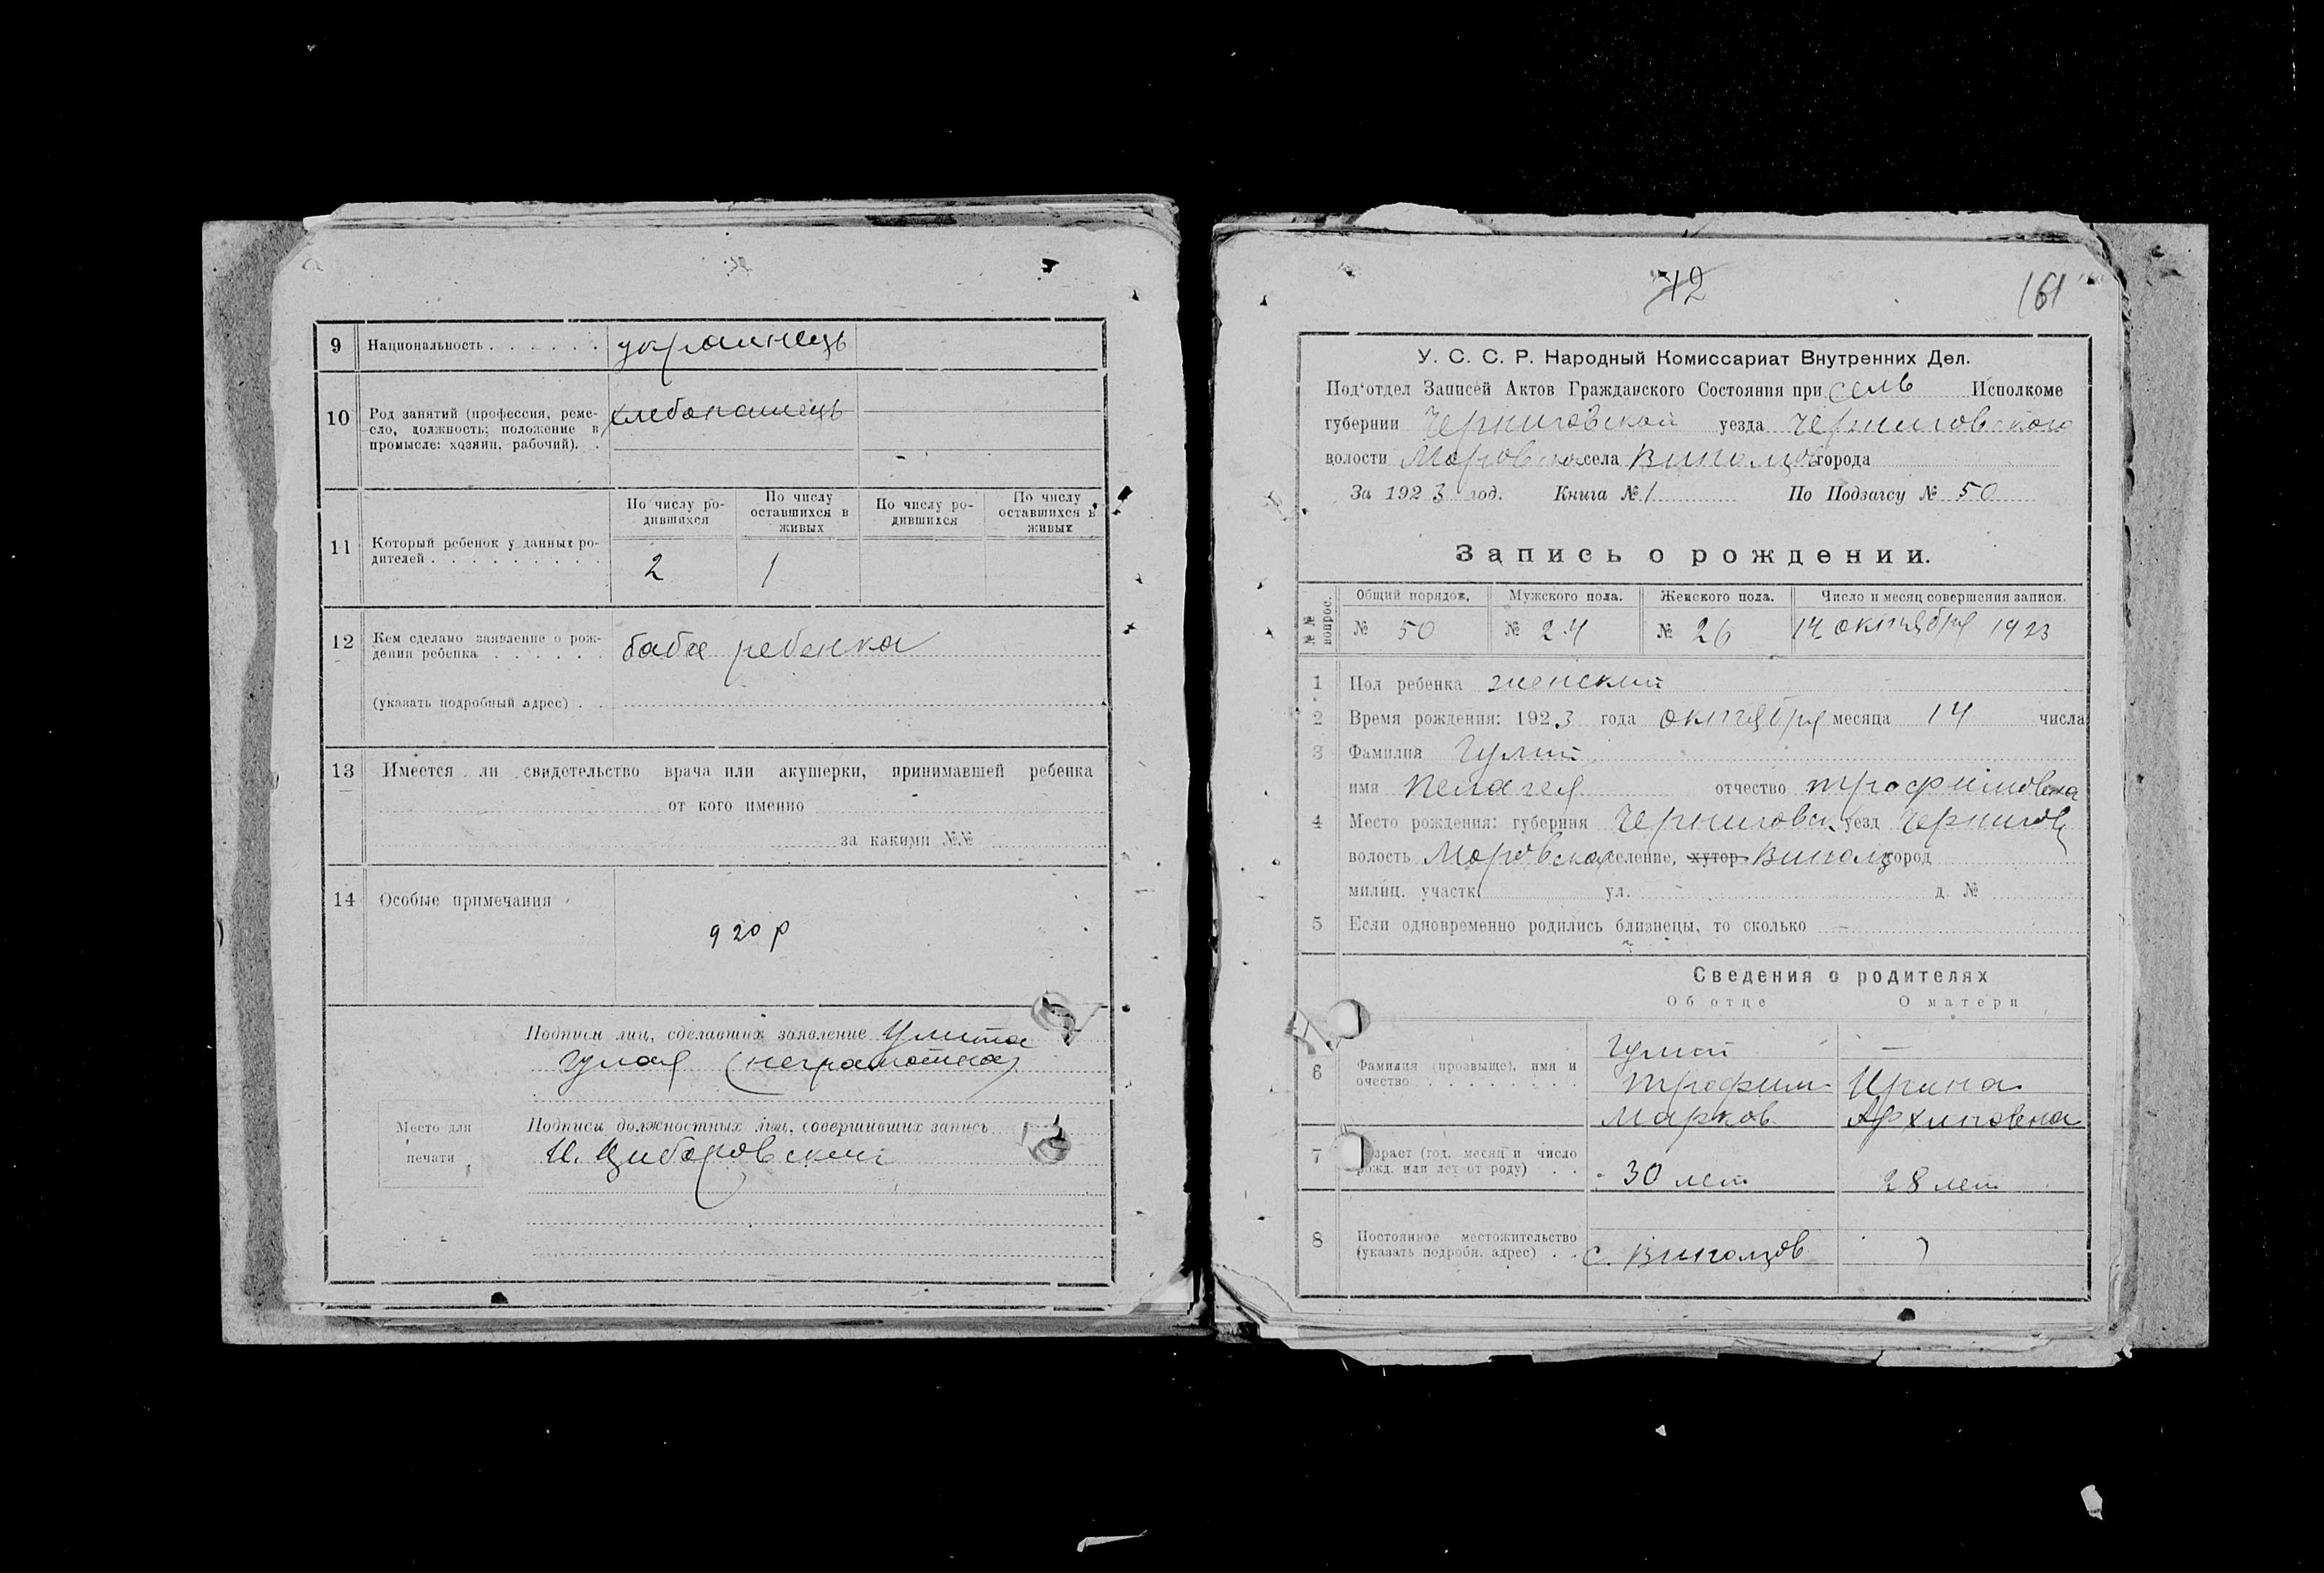 9 Национальность . . . . . . украинець
10 Род занятий (профессия, реме-
сло, должность; положение в
промысле: хозяин, рабочий). . хлебопашець
11 Который ребенок у данных ро-
дителей . . . . . . . . . .
По числу ро-
дившихся
По числу
оставшихся в
живых
По числу ро-
дившихся
По числу
оставшихся в
живых
2 1
12 Кем сделано заявление о рож-
дении ребенка . . . . . . баба ребенка
(указать подробный адрес) . .
13 Имеется ли свидетельство врача или акушерки, принимавшей ребенка
от кого именно
за какими №№
14 Особые примечания
920 р
Подписи лиц, сделавших заявление Улита
Гулая (неграмотна)
Место для
печати
Подписи должностных лиц, совершивших запись
И. Циборовский
42
161
У. С. С. Р. Народный Комиссариат Внутренних Дел.
Под'отдел Записей Актов Гражданского Состояния при сель Исполкоме
губернии Черниговской уезда Черниговского
волости Моровской села Виползов города
За 1923 год. Книга № 1 По Подзагсу № 50
Запись о рождении.
№№ вопрос.
Общий порядок. Мужского пола. Женского пола. Число и месяц совершения записи.
№ 50 № 24 № 26 14 октября 1923
1 Пол ребенка женский
2 Время рождения: 1923 года октября месяца 14 числа
3 Фамилия Гулий
имя Пелагея отчество Трофимовна
4 Место рождения: губерния Черниговск уезд Чернигов
волость Моровская селение, хутор Виползов город
милиц. участк ул. д. №
5 Если одновременно родились близнецы, то сколько —
Сведения о родителях
Об отце О матери
6 Фамилия (прозвыще), имя и
очество . . . . . . . .
Гулий —
Трофим Ирина
Марков Архиповна
7 Возраст (год, месяц и число
рожд. или лет от роду) . . 30 лет 28 лет
8 Постоянное местожительство
(указать подробн. адрес) . . с. Виползов